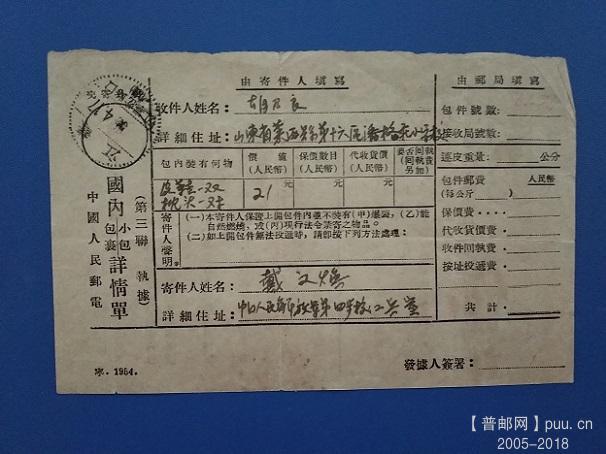 由寄件人填寫
由郵局填寫
收件人姓名：
詳細住址：山東省萊西縣第十六區
包內裝有何物
價值
(人民幣)
保價數目
(人民幣)
代收貨價
(人民幣)
要否回執
(回執費另加)
皮鞋一双
枕头一对
21元
元
元
寄件人聲明。
(一)本寄件人保證上開包件內並不裝有(甲)爆裂，(乙)能
自然燃燒，或(丙)現行法令禁寄之物品。
(二)如上開包件無法投遞時，請卽按下列方法處理：
寄件人姓名：戴
詳細住址：中国人民解放軍第四
包件號數：
接收局號數：
連皮重量：公分
包件郵費 人民幣
(每公斤 )
保價費：
代收貨價費：
收件回執費：
按址投遞費：
共計：
發據人簽署：
(第三聯 執據)
國內小包包裹詳情單
中國人民郵電
寧．1954．
【普邮网】puu.cn
2005-2018